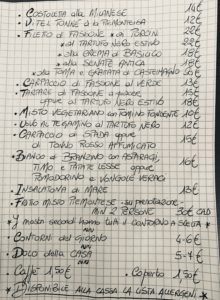 • COSTOLETTA alla MILANESE 14€
• VITEL TONNÉ alla PIEMONTESE 12€
• FILETTO di FASSONE • ai PORCINI 22€
• al TARTUFO NERO ESTIVO 22€
• alla CREMA di BASILICO 18€
• alla SENAPE ANTICA 18€
• alla TOMA e GRANATA di CASTELMAGNO
• CARPACCIO di FASSONE al VERDE 13€
• TARTARE di FASSONE al naturale 15€
oppure al TARTUFO NERO ESTIVO 18€
• MISTO VEGETARIANO con TOMINO FONDENTE 10€
• UOVO AL TEGAMINO al TARTUFO NERO 12€
• CARPACCIO di SPADA oppure 15€
di TONNO ROSSO AFFUMICATO
• BIANCO di BRANZINO con ASPARAGI,
TIMO e PATATE LESSE oppure 16€
POMODORINO e VONGOLE VERACI
• INSALATONA di MARE 13€
• FRITTO MISTO PIEMONTESE su prenotazione
MIN 2 PERSONE 30€ CAD
I nostri secondi hanno tutti il CONTORNO A SCELTA
• CONTORNI del GIORNO 4-6€
• DOLCI della CASA 5-7€
• Caffè 1,50€ • Coperto 1,50€
* DISPONIBILE ALLA CASSA LA LISTA ALLERGENI